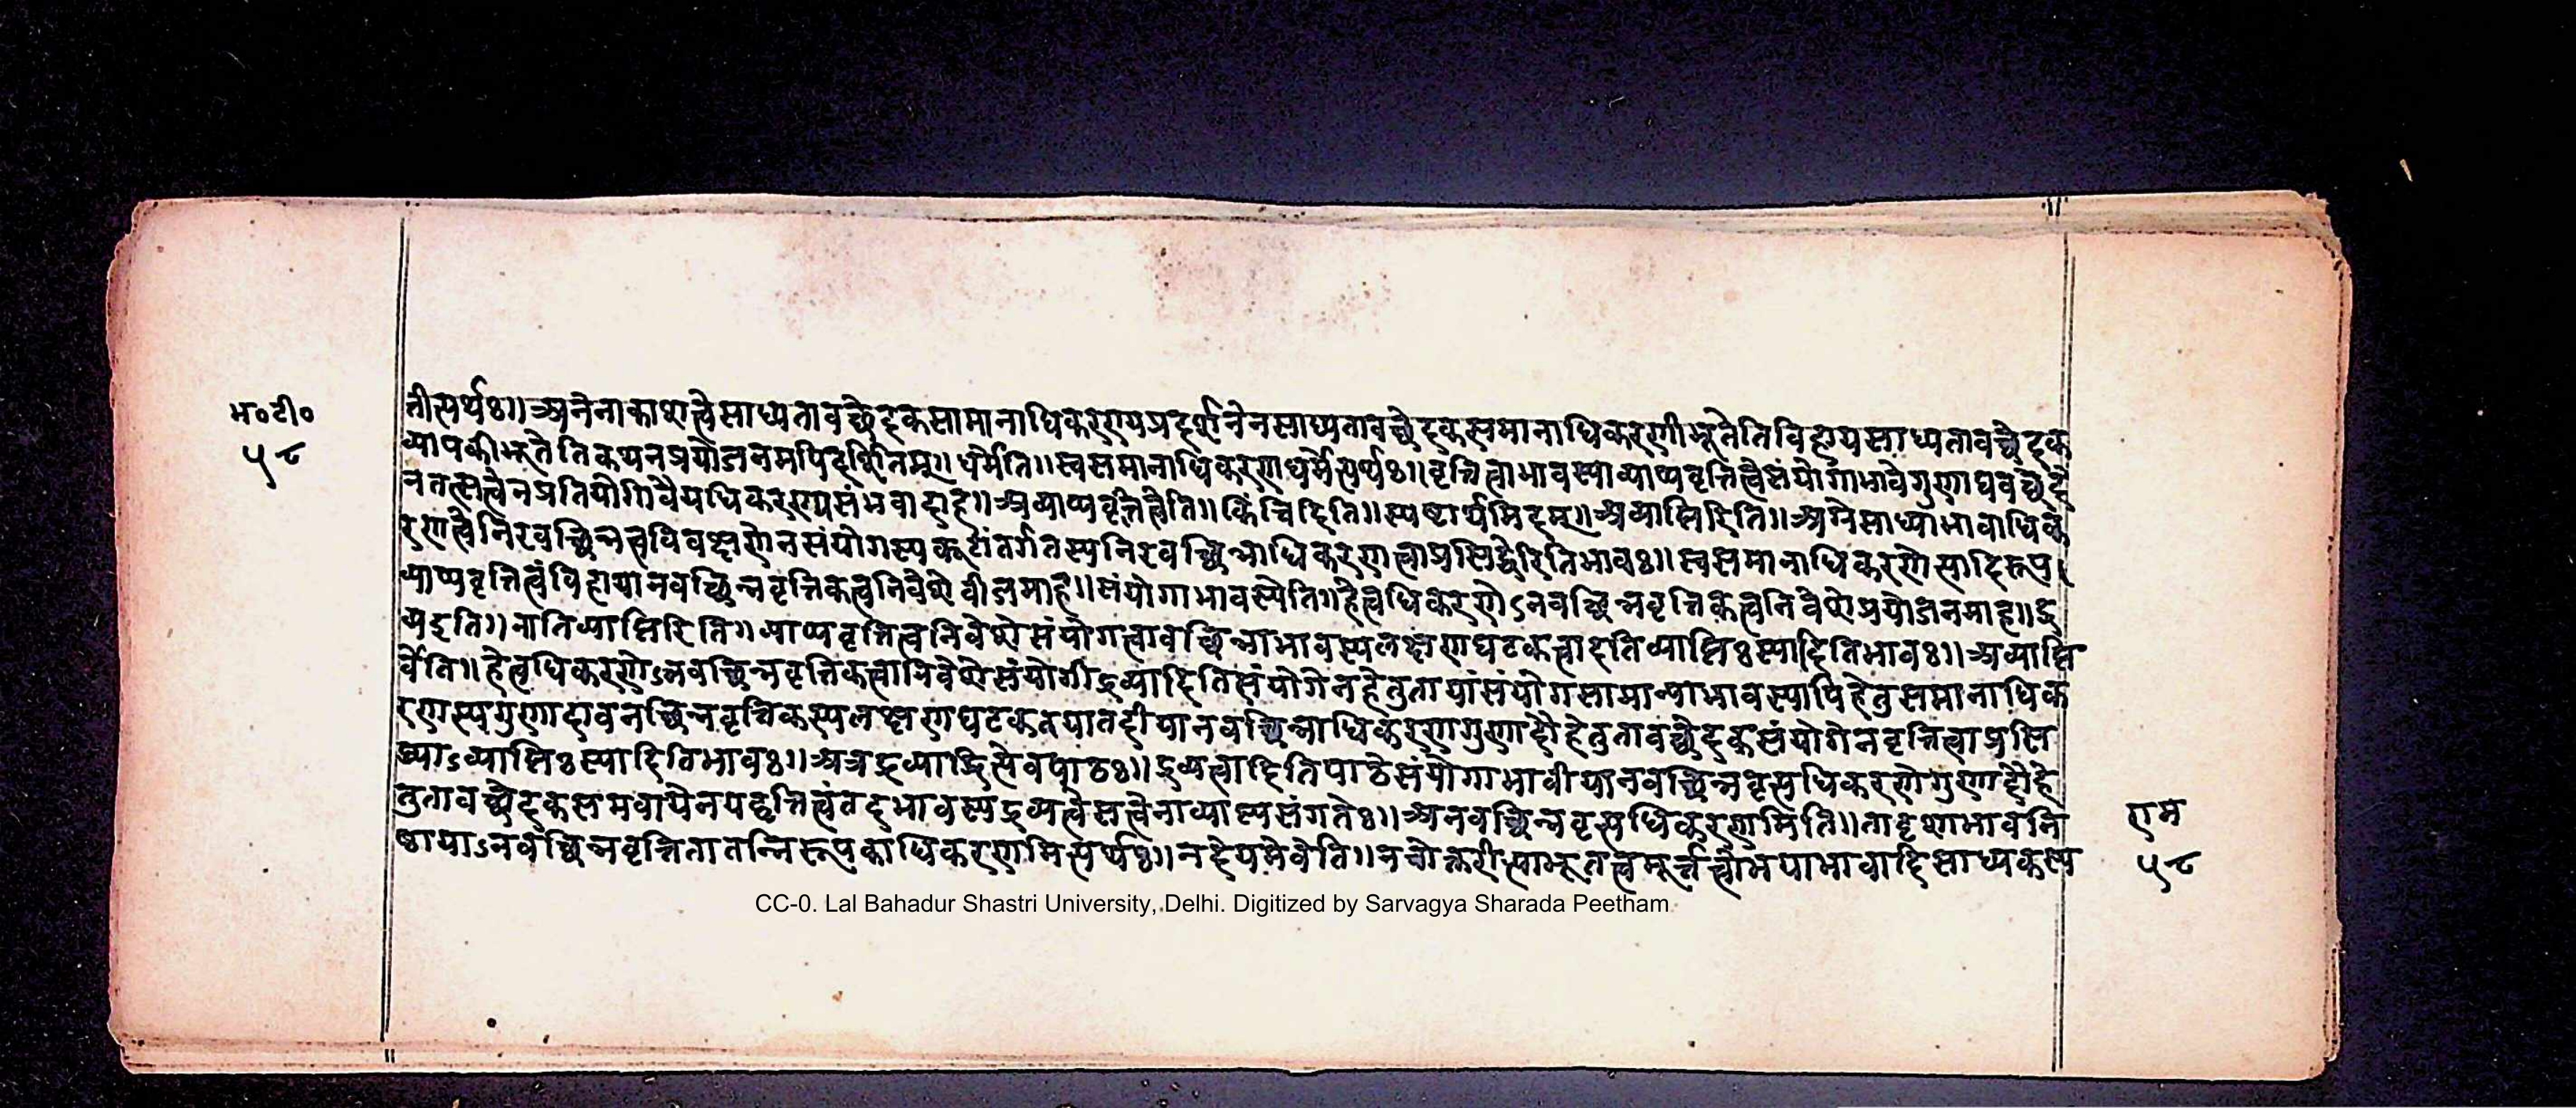 म॰टी॰
५८
तीत्यर्थः॥अनेनाकाशत्वेसाध्यतावच्छेदकसामानाधिकरण्यप्रदर्शनेनसाध्यतावच्छेदकसमानाधिकरणीभूतेतिविहायसाध्यतावच्छेदक
व्यापकीभूतेतिकथनप्रयोजनमपिदर्शितम्॥धर्मेति॥स्वसमानाधिकरणधर्मेत्यर्थः॥वृत्तित्वाभावस्याव्याप्यवृत्तित्वेसंयोगाभावेगुणाद्यवच्छेदे
नतत्सत्वेनप्रतियोगिवैयधिकरण्यसंभवादाह॥अव्याप्यवृत्तित्वेति॥किंचिदिति॥स्पष्टार्थमिदम्॥अव्याप्तिरिति॥अग्रेसाध्याभावाधिक
रणत्वेनिरवच्छिन्नत्वविवक्षणेनसंयोगस्यकूटांतर्गतस्यनिरवच्छिन्नाधिकरणत्वाप्रसिद्धेरितिभावः॥स्वसमानाधिकरणेत्यादिरूप
व्याप्यवृत्तित्वंविहायानवच्छिन्नवृत्तिकत्वनिवेशेबीजमाह॥संयोगाभावस्येति॥हेत्वधिकरणेऽनवच्छिन्नवृत्तिकत्वनिवेशेप्रयोजनमाह॥द्र
व्यइति॥नातिव्याप्तिरिति॥व्याप्यवृत्तित्वनिवेशेसंयोगत्वावच्छिन्नाभावस्यलक्षणघटकत्वादतिव्याप्तिःस्यादितिभावः॥अव्याप्ति
र्वेति॥हेत्वधिकरणेऽनवच्छिन्नवृत्तिकत्वानिवेशेसंयोगीद्रव्यादितिसंयोगेनहेतुतायांसंयोगसामान्याभावस्यापिहेतुसमानाधिक
रणस्यगुणादावनवच्छिन्नवृत्तिकस्यलक्षणघटकतयातदीयानवच्छिन्नाधिकरणगुणादौहेतुतावच्छेदकसंयोगेनवृत्तित्वाप्रसि
द्ध्याऽव्याप्तिःस्यादितिभावः॥अत्रद्रव्यादित्येवपाठः॥द्रव्यत्वादितिपाठेसंयोगाभावीयानवच्छिन्नवृत्त्यधिकरणेगुणादौहे
तुतावच्छेदकसमवायेनयद्वृत्तित्वंतदभावस्यद्रव्यत्वेसत्वेनाव्याप्त्यसंगतेः॥अनवच्छिन्नवृत्त्यधिकरणमिति॥तादृशाभावनि
ष्ठायाऽनवच्छिन्नवृत्तितातन्निरूपकाधिकरणमित्यर्थः॥नदेयमेवेति॥नचोक्तरीत्याभूतत्वमूर्त्तत्वोभयाभावादिसाध्यकस्य
राम
५८
CC-0. Lal Bahadur Shastri University, Delhi. Digitized by Sarvagya Sharada Peetham